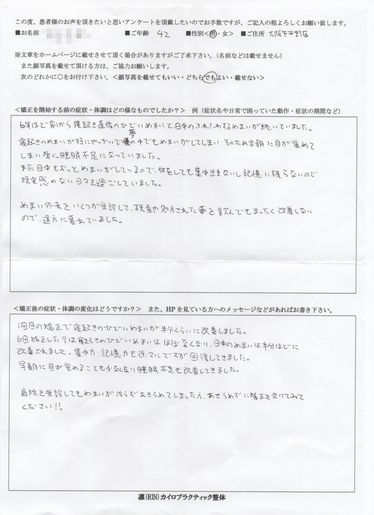 この度、患者様のお声を頂きたいと思いアンケートを頂戴したいのでお手数ですが、ご記入の程よろしくお願い致します。
■お名前 ■ご年齢 42 ■性別(男・女) ■ご住所 大阪市
※文章をホームページに載せさせて頂く場合がありますがご了承下さい。(名前などは載せません)
また顔写真を載せて頂ける方は、ご協力お願いします。
次のどれかに○をお付け下さい。<顔写真を載せてもいい・どちらでもよい・載せない>
<矯正を開始する前の症状・体調はどの様なものでしたか? 例(症状名や日常で困っていた動作・症状の期間など)
6年ほど前から寝起き直後のひどいめまいと日中のふわふわするめまいが続いていました。
寝起きのめまいが特にひどく夢の中でもめまいがしてしまい、そのため早朝に目が覚めて
しまい常に睡眠不足になっていました。
また日中もずっとめまいがしているので、何をしても集中出来ないし記憶に残らないので
現実感のない日々を過ごしていました。
めまい外来をいくつか受診して、検査や処方された薬を飲んでもまったく改善しない
ので、途方に暮れていました。
<矯正後の症状・体調の変化はどうですか?> また、HPを見ている方へのメッセージなどがあればお書き下さい。
1回目の矯正で寝起きのひどいめまいが半分くらいに改善しました。
6回矯正した今は寝起きのひどいめまいはほぼなくなり、日中のめまいは半分ほどに
改善されました。集中力、記憶力も徐々にですが回復してきました。
早朝に目が覚めることも少なくなり睡眠不足も改善してきました。
病院を受診してもめまいが治らずあきらめてしまった方、あきらめずに矯正を受けてみて
ください!!
凛(RIN)カイロプラクティック整体